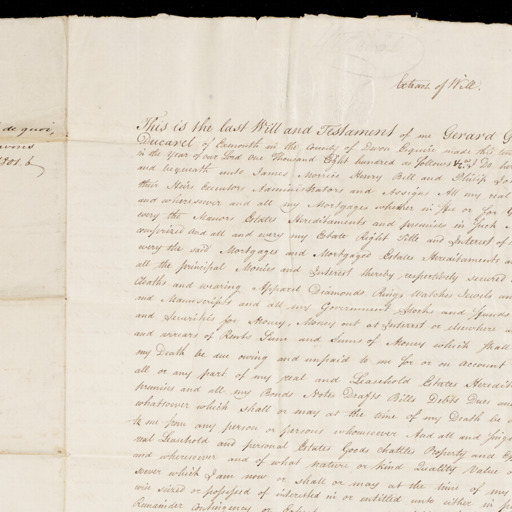 de quoi,
1801. b
Extract of Will.
This is the last Will and Testament of me Gerard G
Ducarel of Exmouth in the County of Devon Esquire made this
in the Year of our Lord One Thousand Eight hundred as follows I Do
and bequeath unto James Morrice Henry Bell and Philip
their Heirs Executors Administrators and Assigns All my real
and wheresoever and all my Mortgages whether in fee or for
every the Manors Estates Hereditaments and premises in such
comprized And all and every my Estate Right Title and Interest of
every the said Mortgages and Mortgaged Estates Hereditaments
all the principal Monies and Interest thereby respectively secured
Cloaths and wearing Apparel Diamonds Rings Watches Jewels and
and Manuscripts and all my Government Stocks and Funds
and Securities for Money, Money out at Interest or elsewhere
and arrears of Rents Sum and Sums of Money which shall
my Death be due owing and unpaid to me for or on account
all or any part of my real and Leasehold Estates Heredit
premises and all my Bonds Notes Drafts Bills Debts Dues and
whatsoever which shall or may at the time of my Death be
to me from any person or persons whomsoever And all and Sing
real Leasehold and personal Estates Goods Chattles Property and
and wheresoever and of what nature or kind Quality Value
soever which I am now or shall or may at the time of my
seized or possessed of interested in or entitled unto either in
Remainder Contingency or